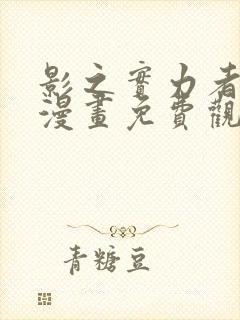 影之實力者
漫畫免費觀
青糖豆